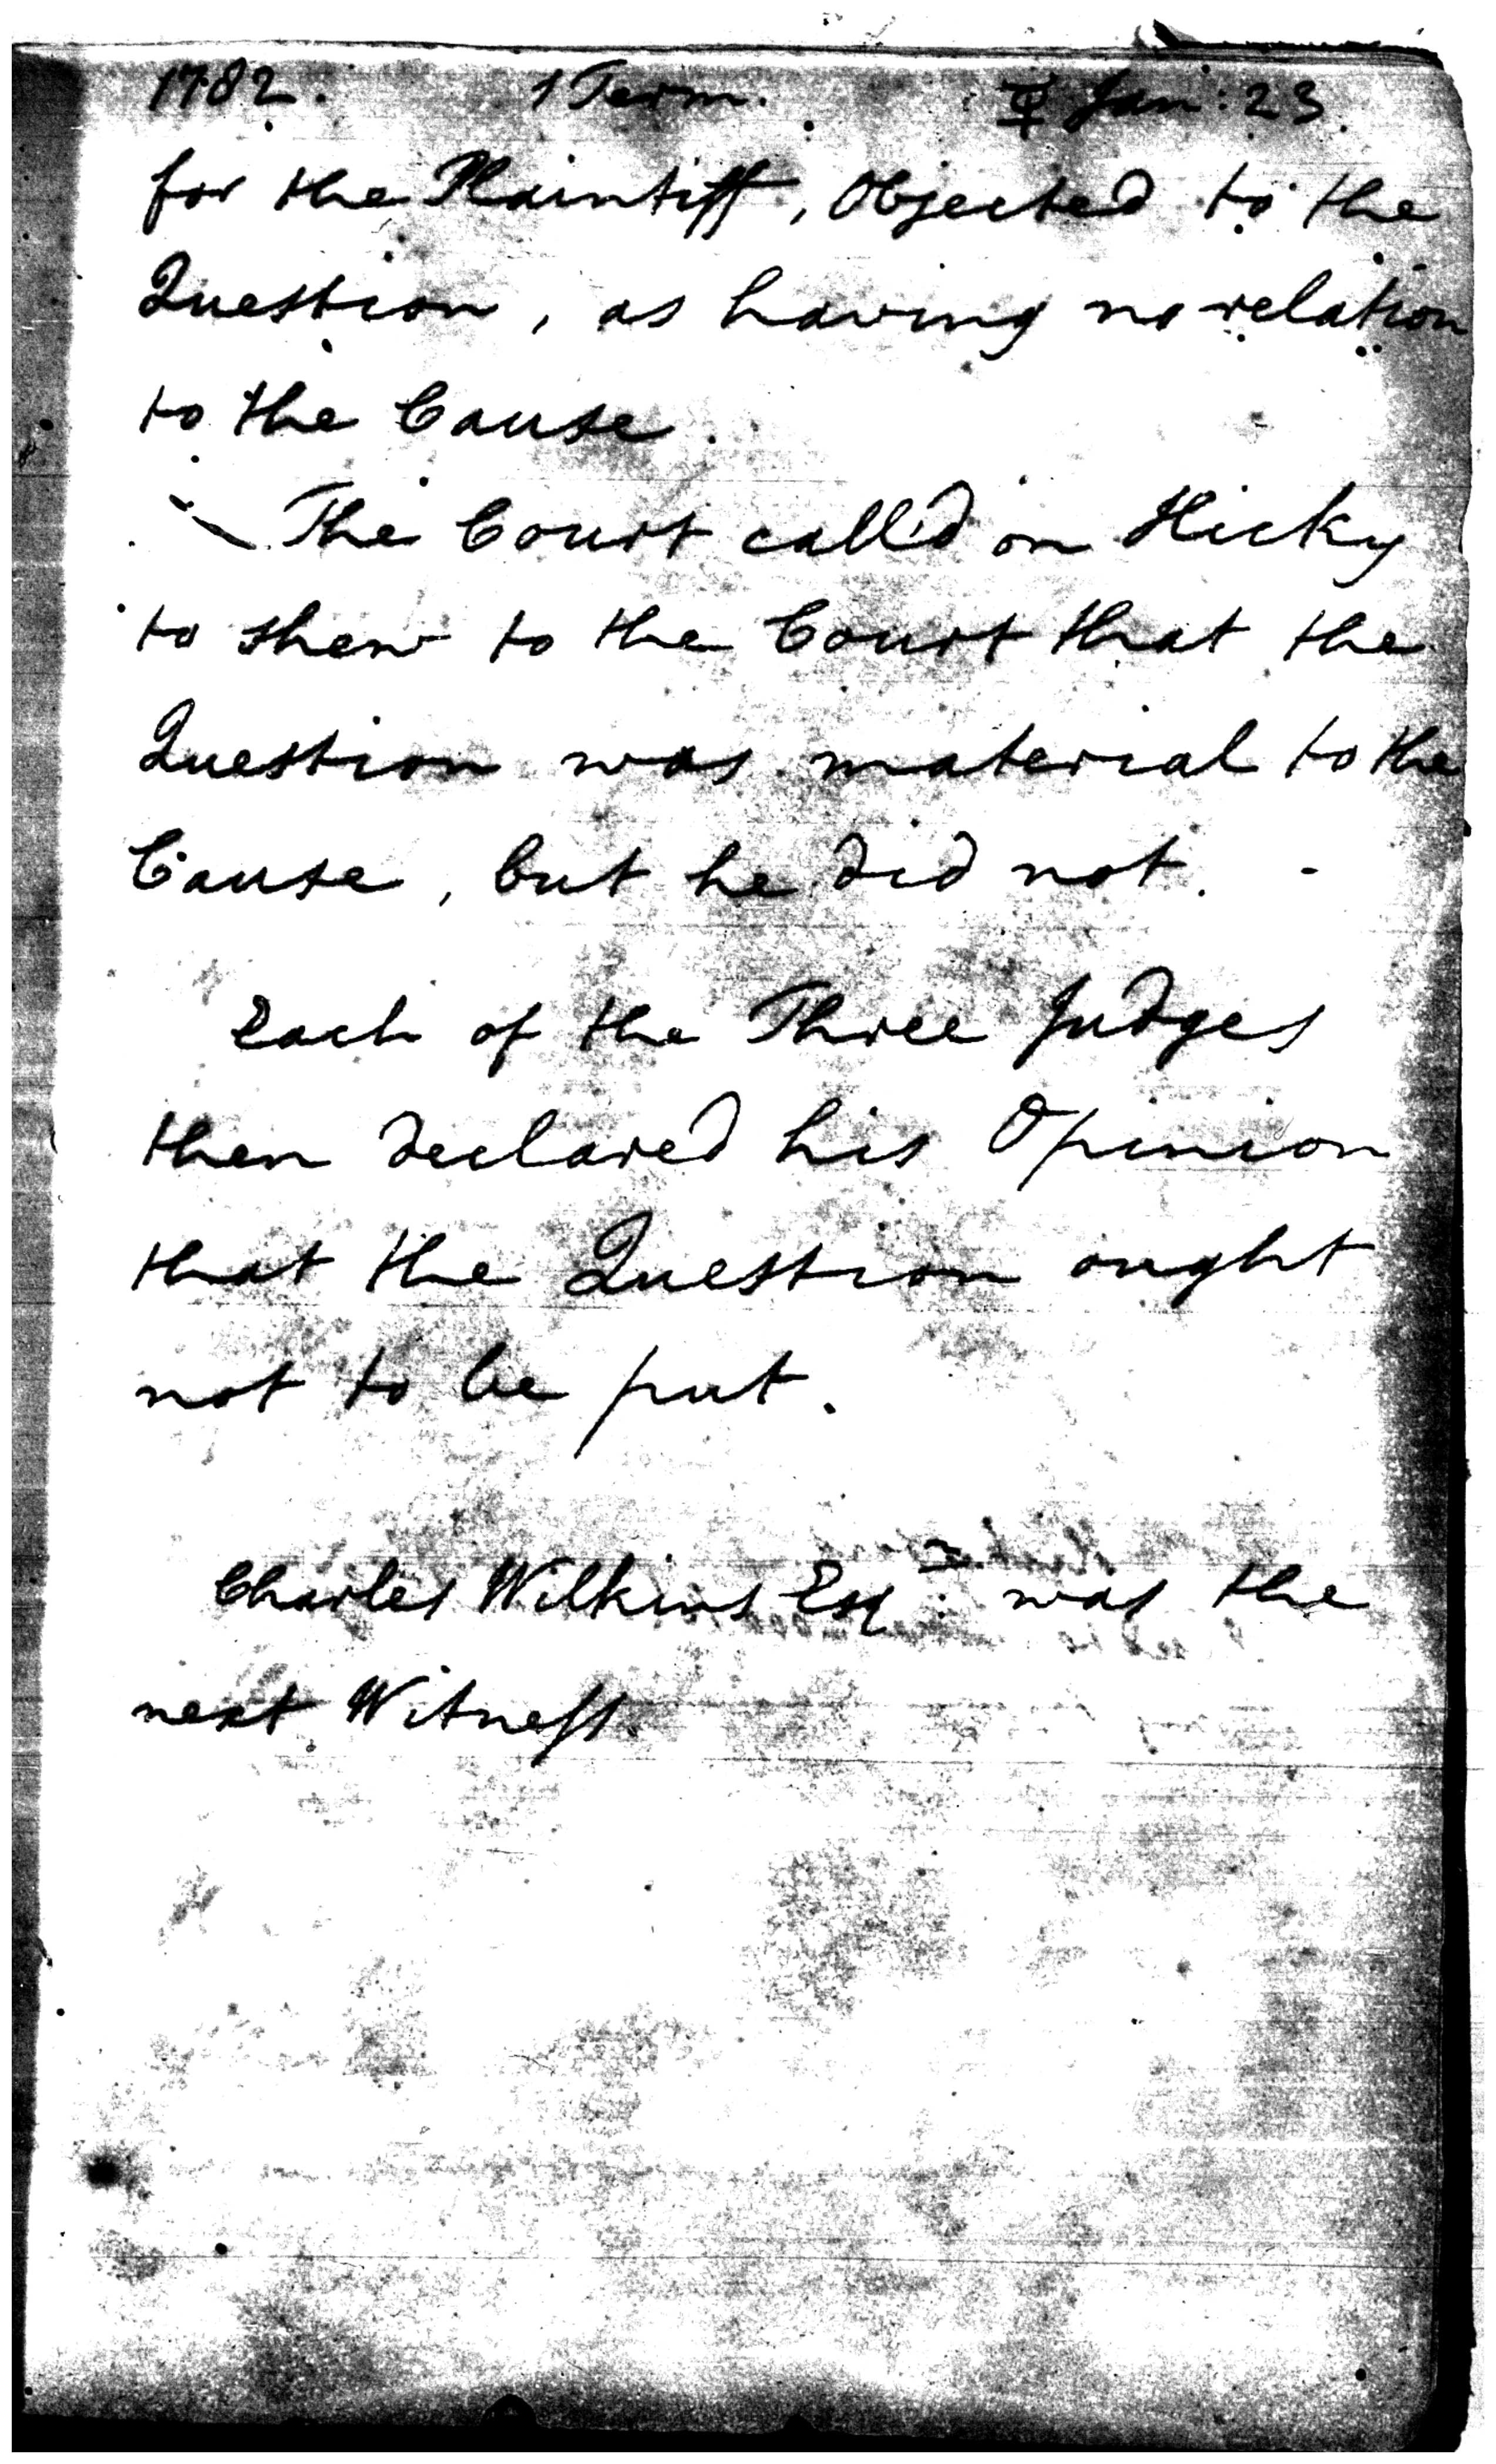 1782. 1 Term. ☿ Jan: 23
for the Plaintiff, Objected to the
Question, as having no relation
to the Cause.
The Court call'd on Hicky
to shew to the Court that the
Question was material to the
Cause, but he did not. -
Each of the Three Judges
then declared his Opinion
that the Question ought
not to be put.
Charles Wilkins Esqr: was the
next Witneſs.